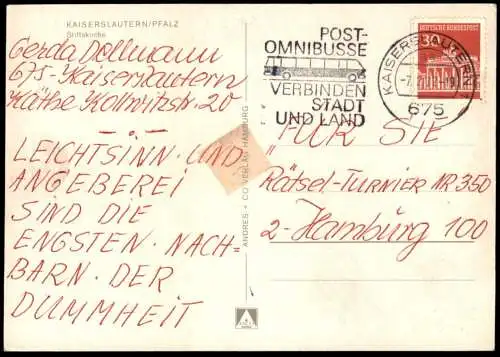 KAISERSLAUTERN/PFALZ
Stiftskirche
Gerda Dollmann
675-Kaiserslautern
Käthe Kollwitzstr. 20
LEICHTSINN UND
ANGEBEREI
SIND DIE
ENGSTEN NACH-
BARN DER
DUMMHEIT
ANDRES + CO VERLAG HAMBURG
POST-
OMNIBUSSE
VERBINDEN
STADT
UND LAND
KAISERSLAUTERN
675
DEUTSCHE BUNDESPOST
30
"FÜR SIE"
Rätsel-Turnier NR. 350
2-Hamburg 100